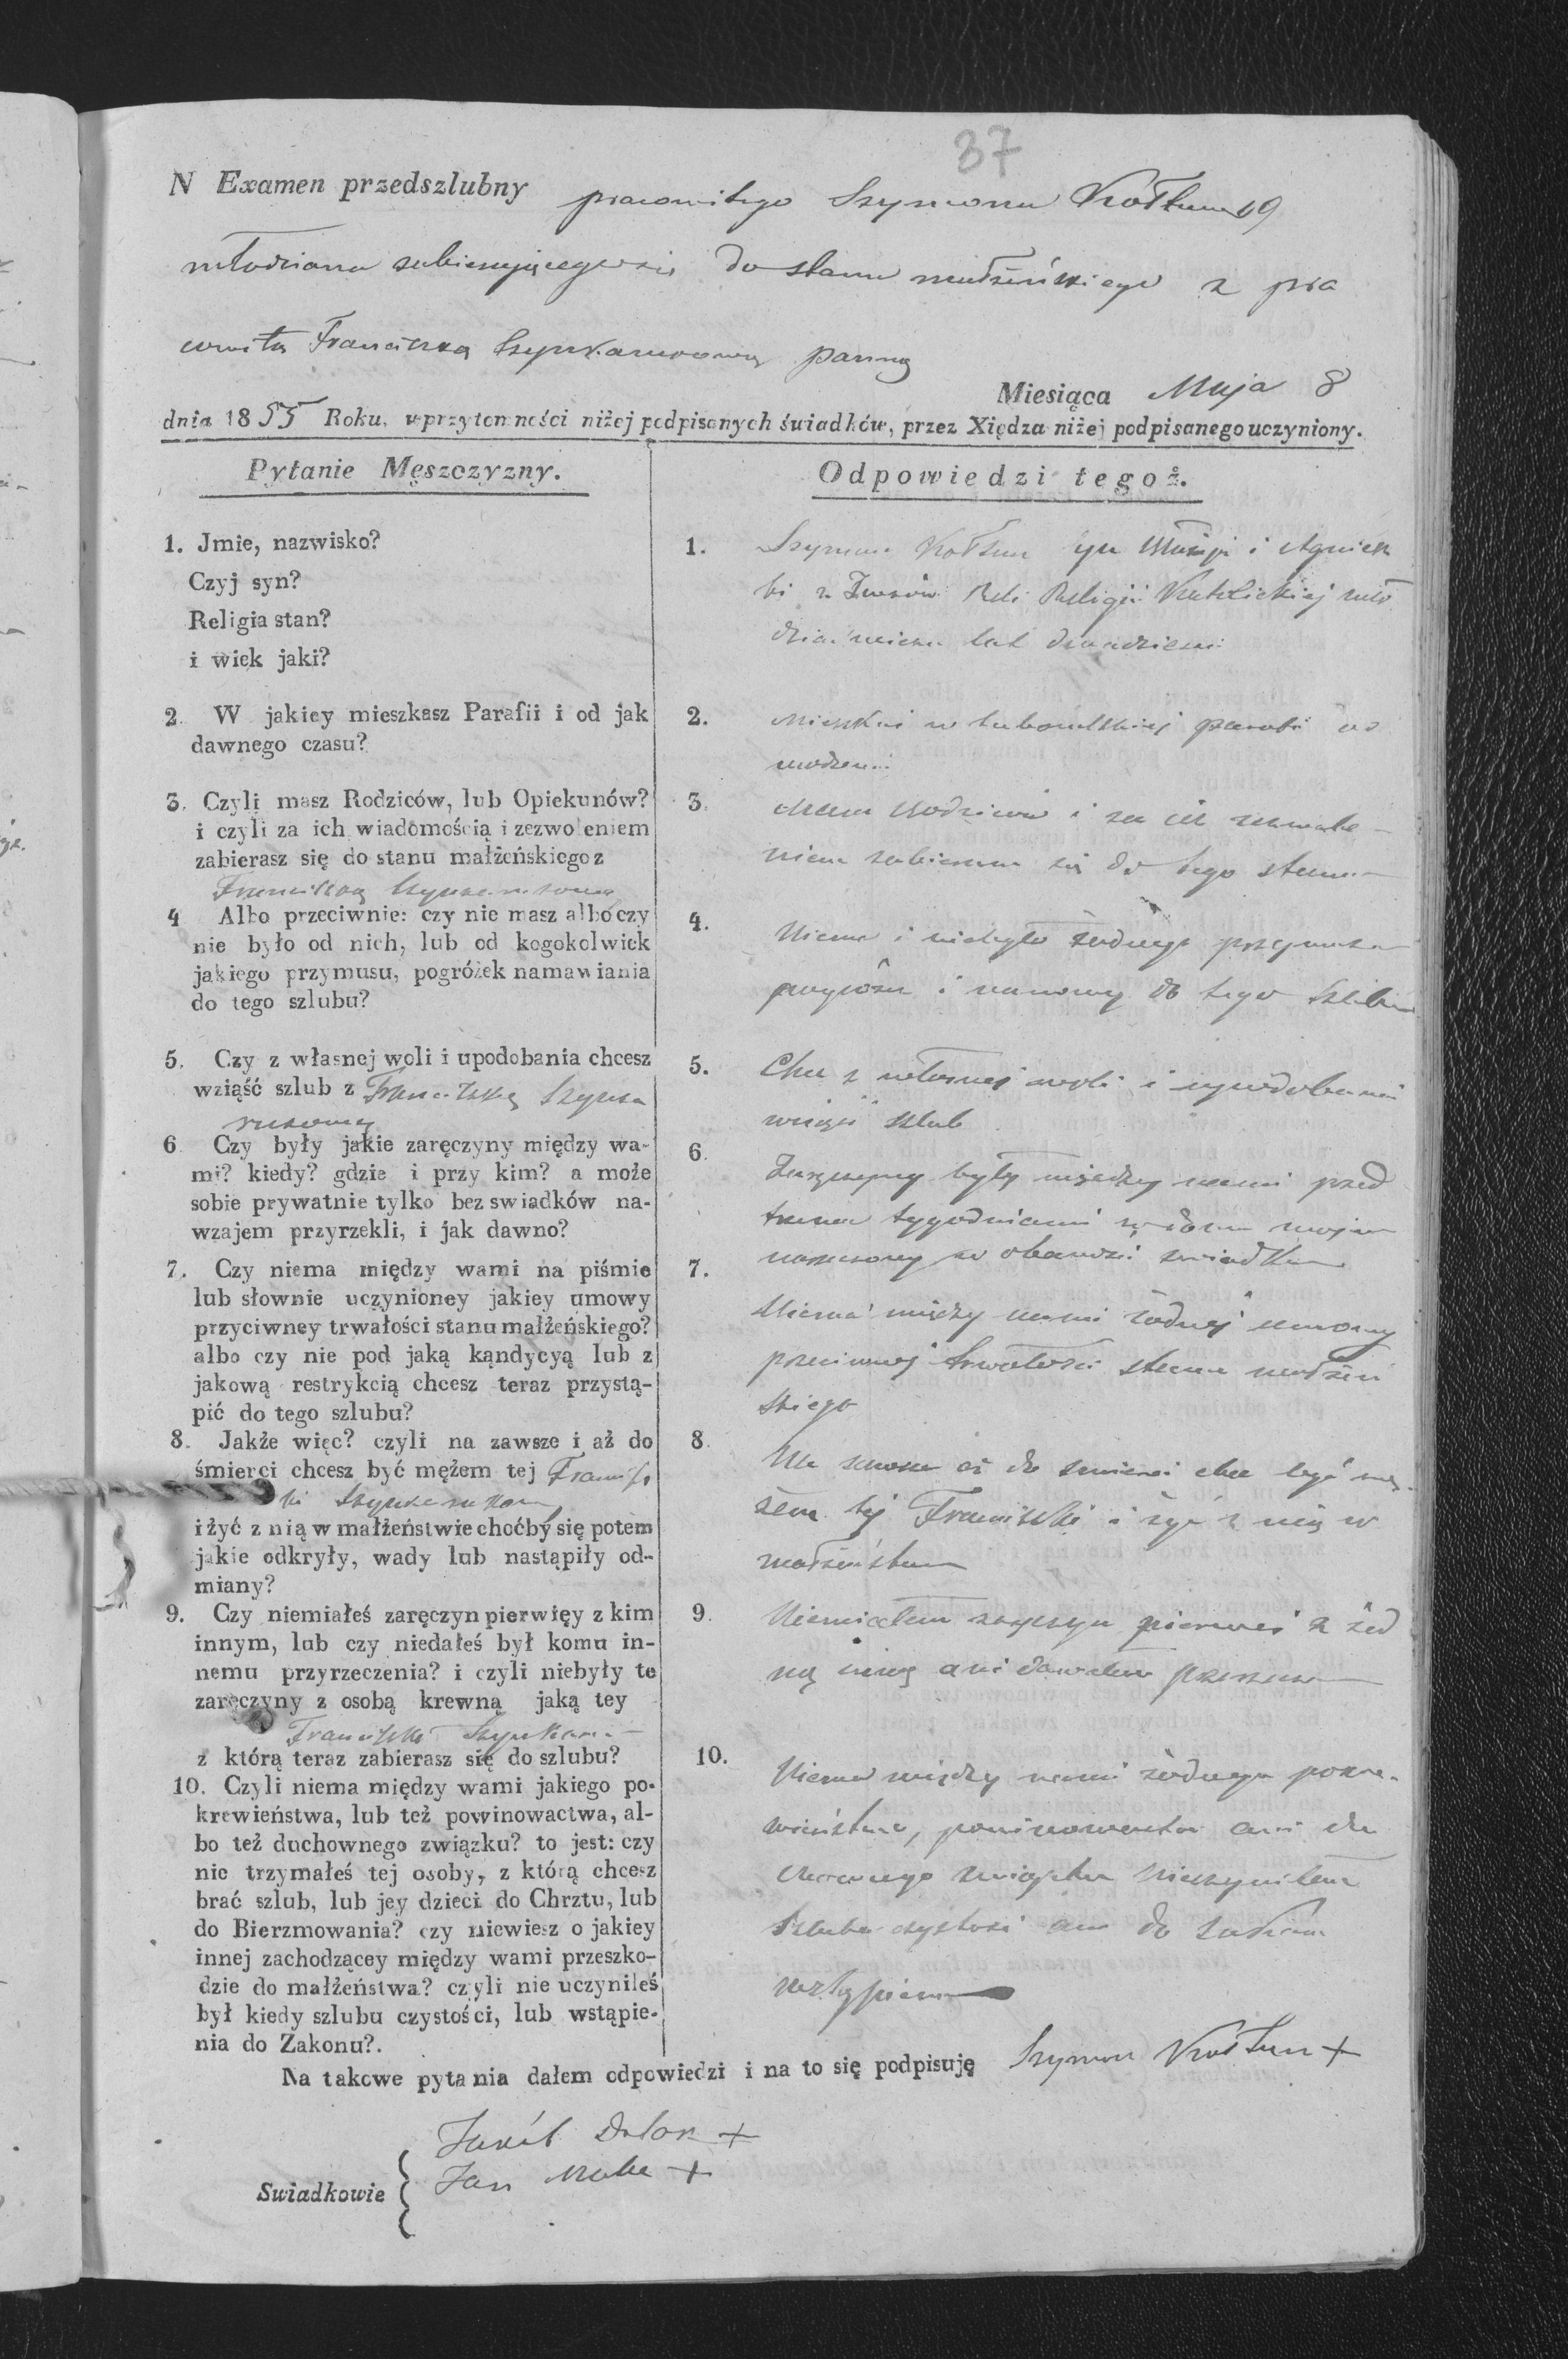 37
N Examen przedszlubny pracowitego Szymona Kołtun
młodziana zabierającego się do stanu małżeńskiego z pra
cowitą Franciszką Szynkarukową panną
Miesiąca Maja 8
dnia 1855 Roku, w przytomności niżej podpisanych świadków, przez Xiędza niżej podpisanego uczyniony.
Pytanie Męszczyzny.
1. Jmie, nazwisko?
Czyj syn?
Religia stan?
i wiek jaki?
2. W jakiey mieszkasz Parafii i od jak
dawnego czasu?
3. Czyli masz Rodziców, lub Opiekunów?
i czyli za ich wiadomością i zezwoleniem
zabierasz się do stanu małżeńskiego z
Franciszką
4 Albo przeciwnie: czy nie masz albo czy
nie było od nich, lub od kogokolwiek
jakiego przymusu, pogróżek namawiania
do tego szlubu?
5. Czy z własnej woli i upodobania chcesz
wziąść szlub z Franciszką Szynka
rukową
6 Czy były jakie zaręczyny między wa-
mi? kiedy? gdzie i przy kim? a może
sobie prywatnie tylko bez swiadków na-
wzajem przyrzekli, i jak dawno?
7. Czy niema między wami na piśmie
lub słownie uczynioney jakiey umowy
przyciwney trwałości stanu małżeńskiego?
albo czy nie pod jaką kąndycyą lub z
jakową restrykcią chcesz teraz przystą-
pić do tego szlubu?
8. Jakże więc? czyli na zawsze i aż do
śmierci chcesz być mężem tej Francisz
ki
i żyć z nią w małżeństwie choćby się potem
jakie odkryły, wady lub nastąpiły od-
miany?
9. Czy niemiałeś zaręczyn pierwięy z kim
innym, lub czy niedałeś był komu in-
nemu przyrzeczenia? i czyli niebyły te
zaręczyny z osobą krewną jaką tey
Franciszki
z którą teraz zabierasz się do szlubu?
10. Czyli niema między wami jakiego po-
krewieństwa, lub też powinowactwa, al-
bo też duchownego związku? to jest: czy
nie trzymałeś tej osoby, z którą chcesz
brać szlub, lub jey dzieci do Chrztu, lub
do Bierzmowania? czy niewiesz o jakiey
innej zachodzącey między wami przeszko-
dzie do małżeństwa? czyli nie uczyniłeś
był kiedy szlubu czystości, lub wstąpie-
nia do Zakonu?.
Odpowiedzi tegoż.
1. Szymon Kołtun syn i Agniesz
ki z Religii Katolickiej mło
dzian lat
2. w parafii od
3. Mam Rodziców i za ich zezwole-
niem zabieram się do tego stanu
4. Niema i niebyło żadnego przymusu
i namowy do tego Szlubu
5. Chcę z własnej woli i upodobania
wziąść szlub
6. Zaręczyny były między nami przed
trzema tygodniami w domu moim
w świadków
7. Niema między nami żadnej umowy
przeciwnej trwałości stanu małżeń
skiego
8. Na zawsze aż do śmierci chcę być mę-
żem tej Franciszki i żyć z nią w
małżeństwie
9. Niemiałem zaręczyn pierwej z żad
ną inną ani dawałem
10. Niema między nami żadnego pokre-
wieństwa, powinowactwa ani du
chownego związku nieczyniłem
Szlubu czystości ani do Zakonu
wstąpienia
Na takowe pytania dałem odpowiedzi i na to się podpisuję Szymon Kołtun +
Jakób +
Swiadkowie Jan +